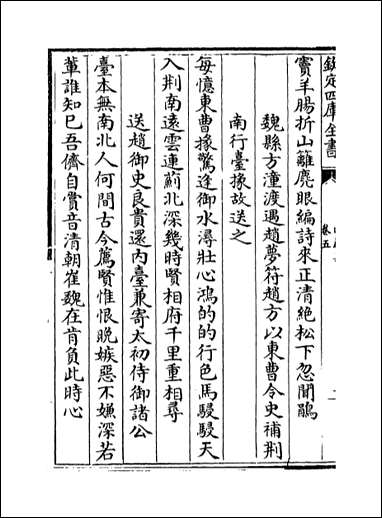 欽定四庫全書
卷五
竇羊腸折山籬麂眼編詩來正清絶松下忽聞鵑
魏縣方潼渡遇趙夢符趙方以東曹令史補荆
南行臺掾故送之
每憶東曹掾驚逢御水潯壯心鴻的的行色馬駸駸天
入荆南遠雲連薊北深幾時賢相府千里重相尋
送趙御史良貴還內臺兼寄太初侍御諸公
臺本無南北人何間古今薦賢惟恨晚嫉惡不嫌深若
輩誰知已吾儕自賞音清朝崔魏在肯負此時心